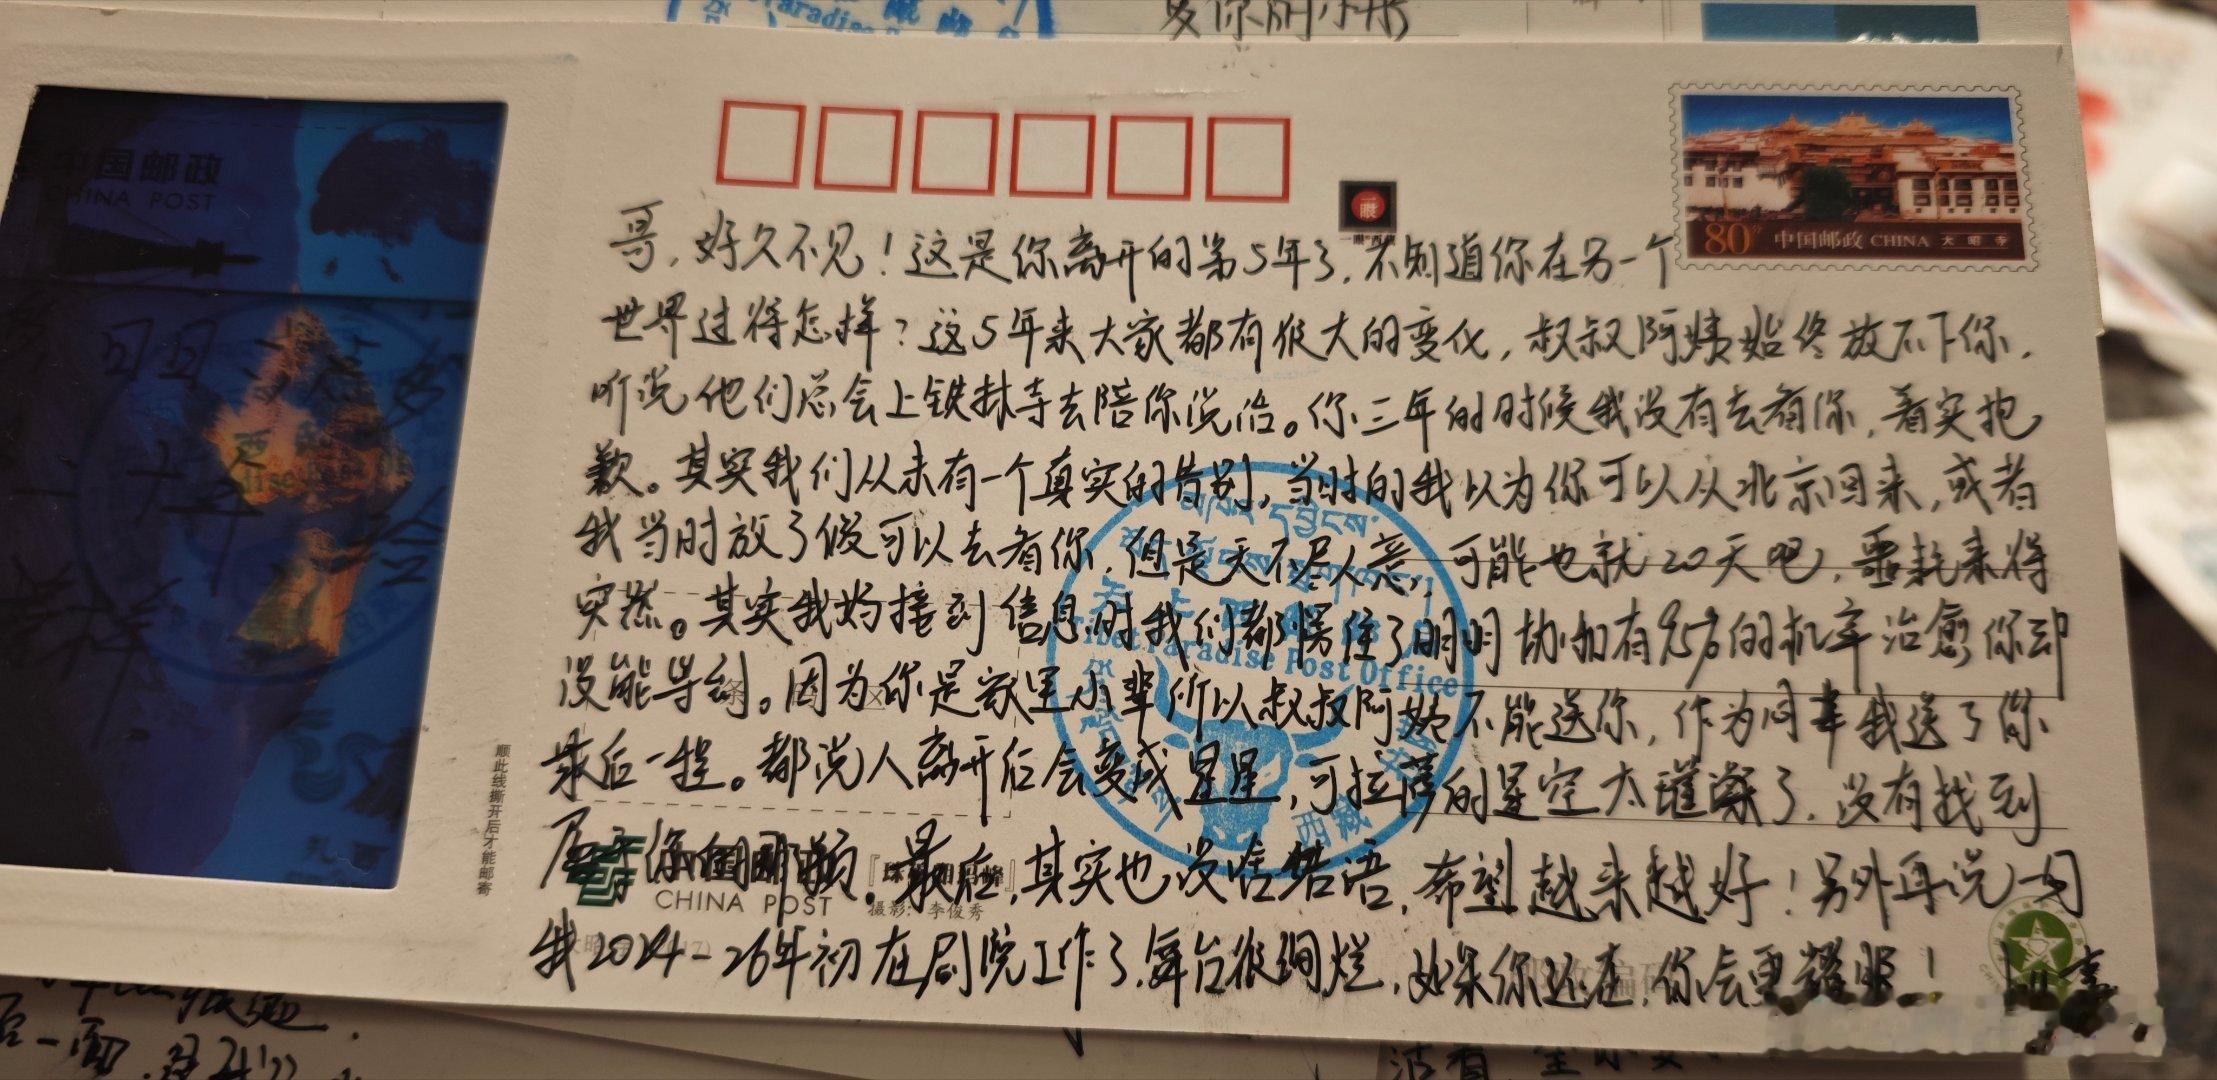 爱你的小
中国邮政
CHINA POST
80分 中国邮政 CHINA 大昭寺
哥，好久不见！这是你离开的第5年了，不知道你在另一个
世界过得怎样？这5年来大家都有很大的变化，叔叔阿姨始终放不下你，
听说他们总会上铁林寺去陪你说话。你三年的时候我没有去看你，着实抱
歉。其实我们从未有一个真实的告别，当时的我以为你可以从北京回来，或者
我当时放了假可以去看你，但是天不尽人意，可能也就20天吧，噩耗来得
突然。其实我妈接到信息时我们都愣住了明明协和有95%的机率治愈你却
没能等到。因为你是家里小辈所以叔叔阿姨不能送你，作为同辈我送了你
最后一程。都说人离开后会变成星星，可拉萨的星空太璀璨了，没有找到
属于你的那颗。最后，其实也没啥结语，希望越来越好！另外再说一句
我2024-26年初在剧院工作了，舞台很绚烂，如果你还在，你会更耀眼！
Tibet Paradise Post Office
西藏
顺此线撕开后才能邮寄
CHINA POST
摄影：李俊秀